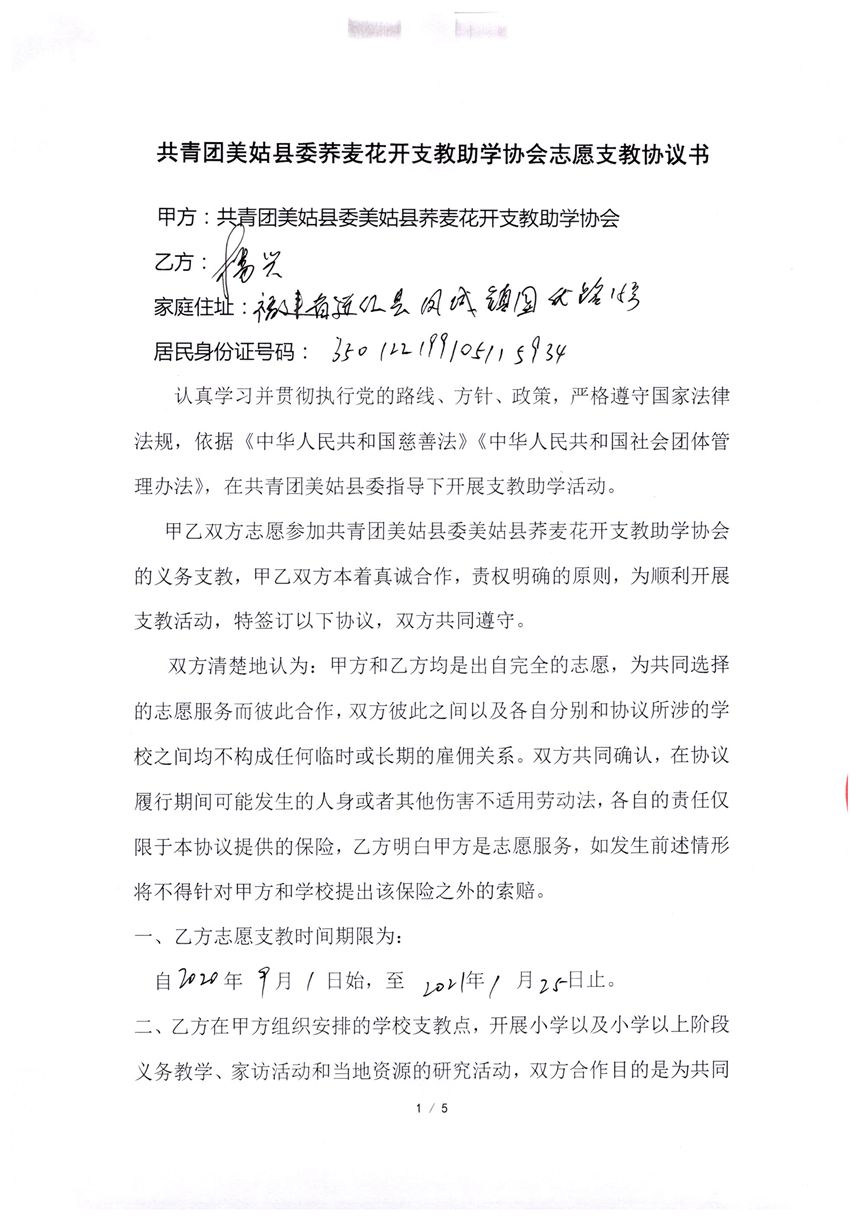 共青团美姑县委荞麦花开支教助学协会志愿支教协议书
甲方：共青团美姑县委美姑县荞麦花开支教助学协会
乙方：杨兴
家庭住址：福建省连江县凤城镇园 路15号
居民身份证号码： 350122199105115934
认真学习并贯彻执行党的路线、方针、政策，严格遵守国家法律
法规，依据《中华人民共和国慈善法》《中华人民共和国社会团体管
理办法》，在共青团美姑县委指导下开展支教助学活动。
甲乙双方志愿参加共青团美姑县委美姑县荞麦花开支教助学协会
的义务支教，甲乙双方本着真诚合作，责权明确的原则，为顺利开展
支教活动，特签订以下协议，双方共同遵守。
双方清楚地认为：甲方和乙方均是出自完全的志愿，为共同选择
的志愿服务而彼此合作，双方彼此之间以及各自分别和协议所涉的学
校之间均不构成任何临时或长期的雇佣关系。双方共同确认，在协议
履行期间可能发生的人身或者其他伤害不适用劳动法，各自的责任仅
限于本协议提供的保险，乙方明白甲方是志愿服务，如发生前述情形
将不得针对甲方和学校提出该保险之外的索赔。
一、乙方志愿支教时间期限为：
自2020年 9月 1 日始，至 2021年 1 月25日止。
二、乙方在甲方组织安排的学校支教点，开展小学以及小学以上阶段
义务教学、家访活动和当地资源的研究活动，双方合作目的是为共同
1 / 5